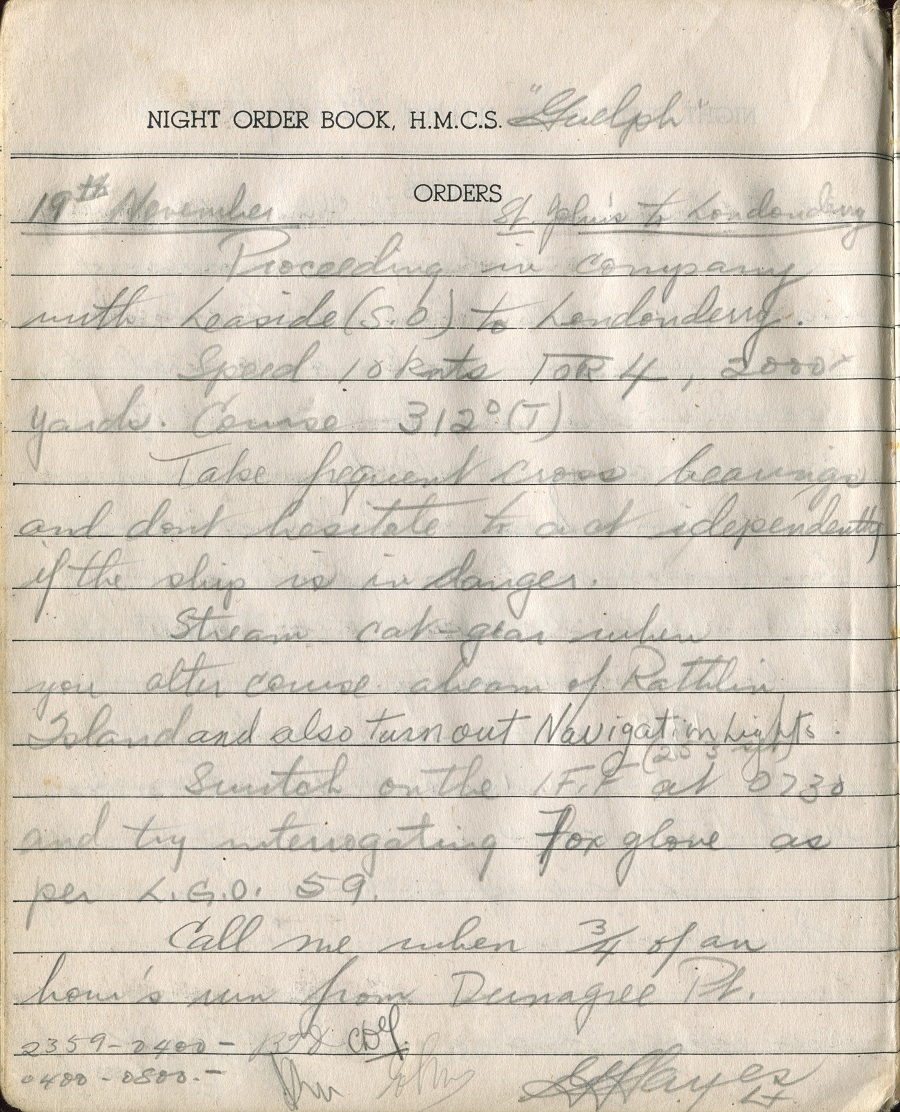 NIGHT ORDER BOOK, H.M.C.S. "Guelph"
ORDERS
19th November St. John's to Londonderry
Proceeding in company
with Leaside (S.O.) to Londonderry.
Speed 10 knts 4, 2000
yards. Course 312°(T)
Take frequent cross bearings
and dont hesitate to act idependently
if the ship is in danger.
Stream cat-gear when
you alter course abeam of Rathlin
Island and also turn out Navigation Lights.
Switch on the I.F.F at 0730
and try interrogating Foxglove as
per L.G.O. 59.
Call me when 3/4 of an
hour's run from Dunagree Pt.
2359-0400-
0400-0800.- Hayes
Lt.